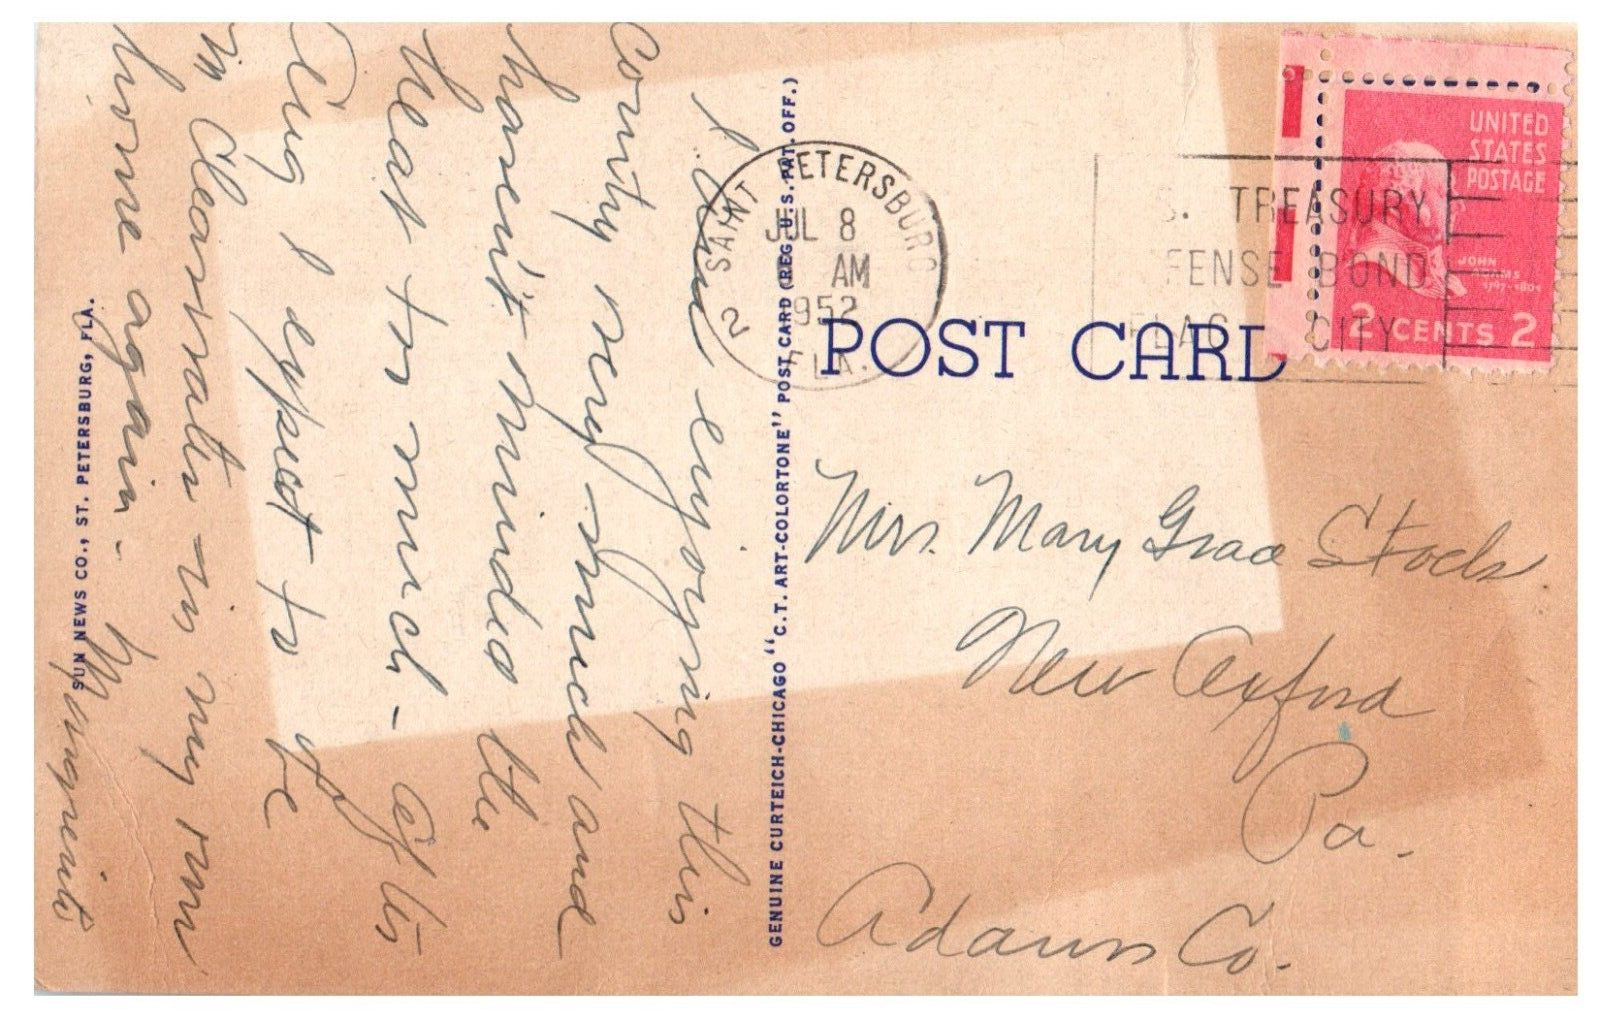 I am enjoying this
country very much and
haven't minded the
heat to much - After
Aug I expect to be
in Clearwater in my own
home again -
SUN NEWS CO., ST. PETERSBURG, FLA.
GENUINE CURTEICH-CHICAGO "C.T. ART-COLORTONE" POST CARD (REG. U.S. PAT. OFF.)
SAINT PETERSBURG
JUL 8
AM
1952
2
FLA.
S. TREASURY
FENSE BOND
FLAG CITY
UNITED
STATES
POSTAGE
JOHN
ADAMS
1797-1801
2 CENTS 2
POST CARD
Mrs. Mary Grace
New Oxford
Pa.
Adams Co.